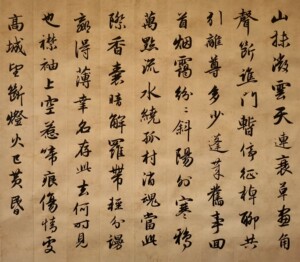 山抹微雲天連衰草畫角
聲斷譙門暫停征棹聊共
引離尊多少蓬萊舊事回
首煙靄紛紛斜陽外寒鴉
萬點流水繞孤村消魂當此
際香囊暗解羅帶輕分謾
贏得薄幸名存此去何時見
也襟袖上空惹啼痕傷情處
高城望斷燈火已黃昏